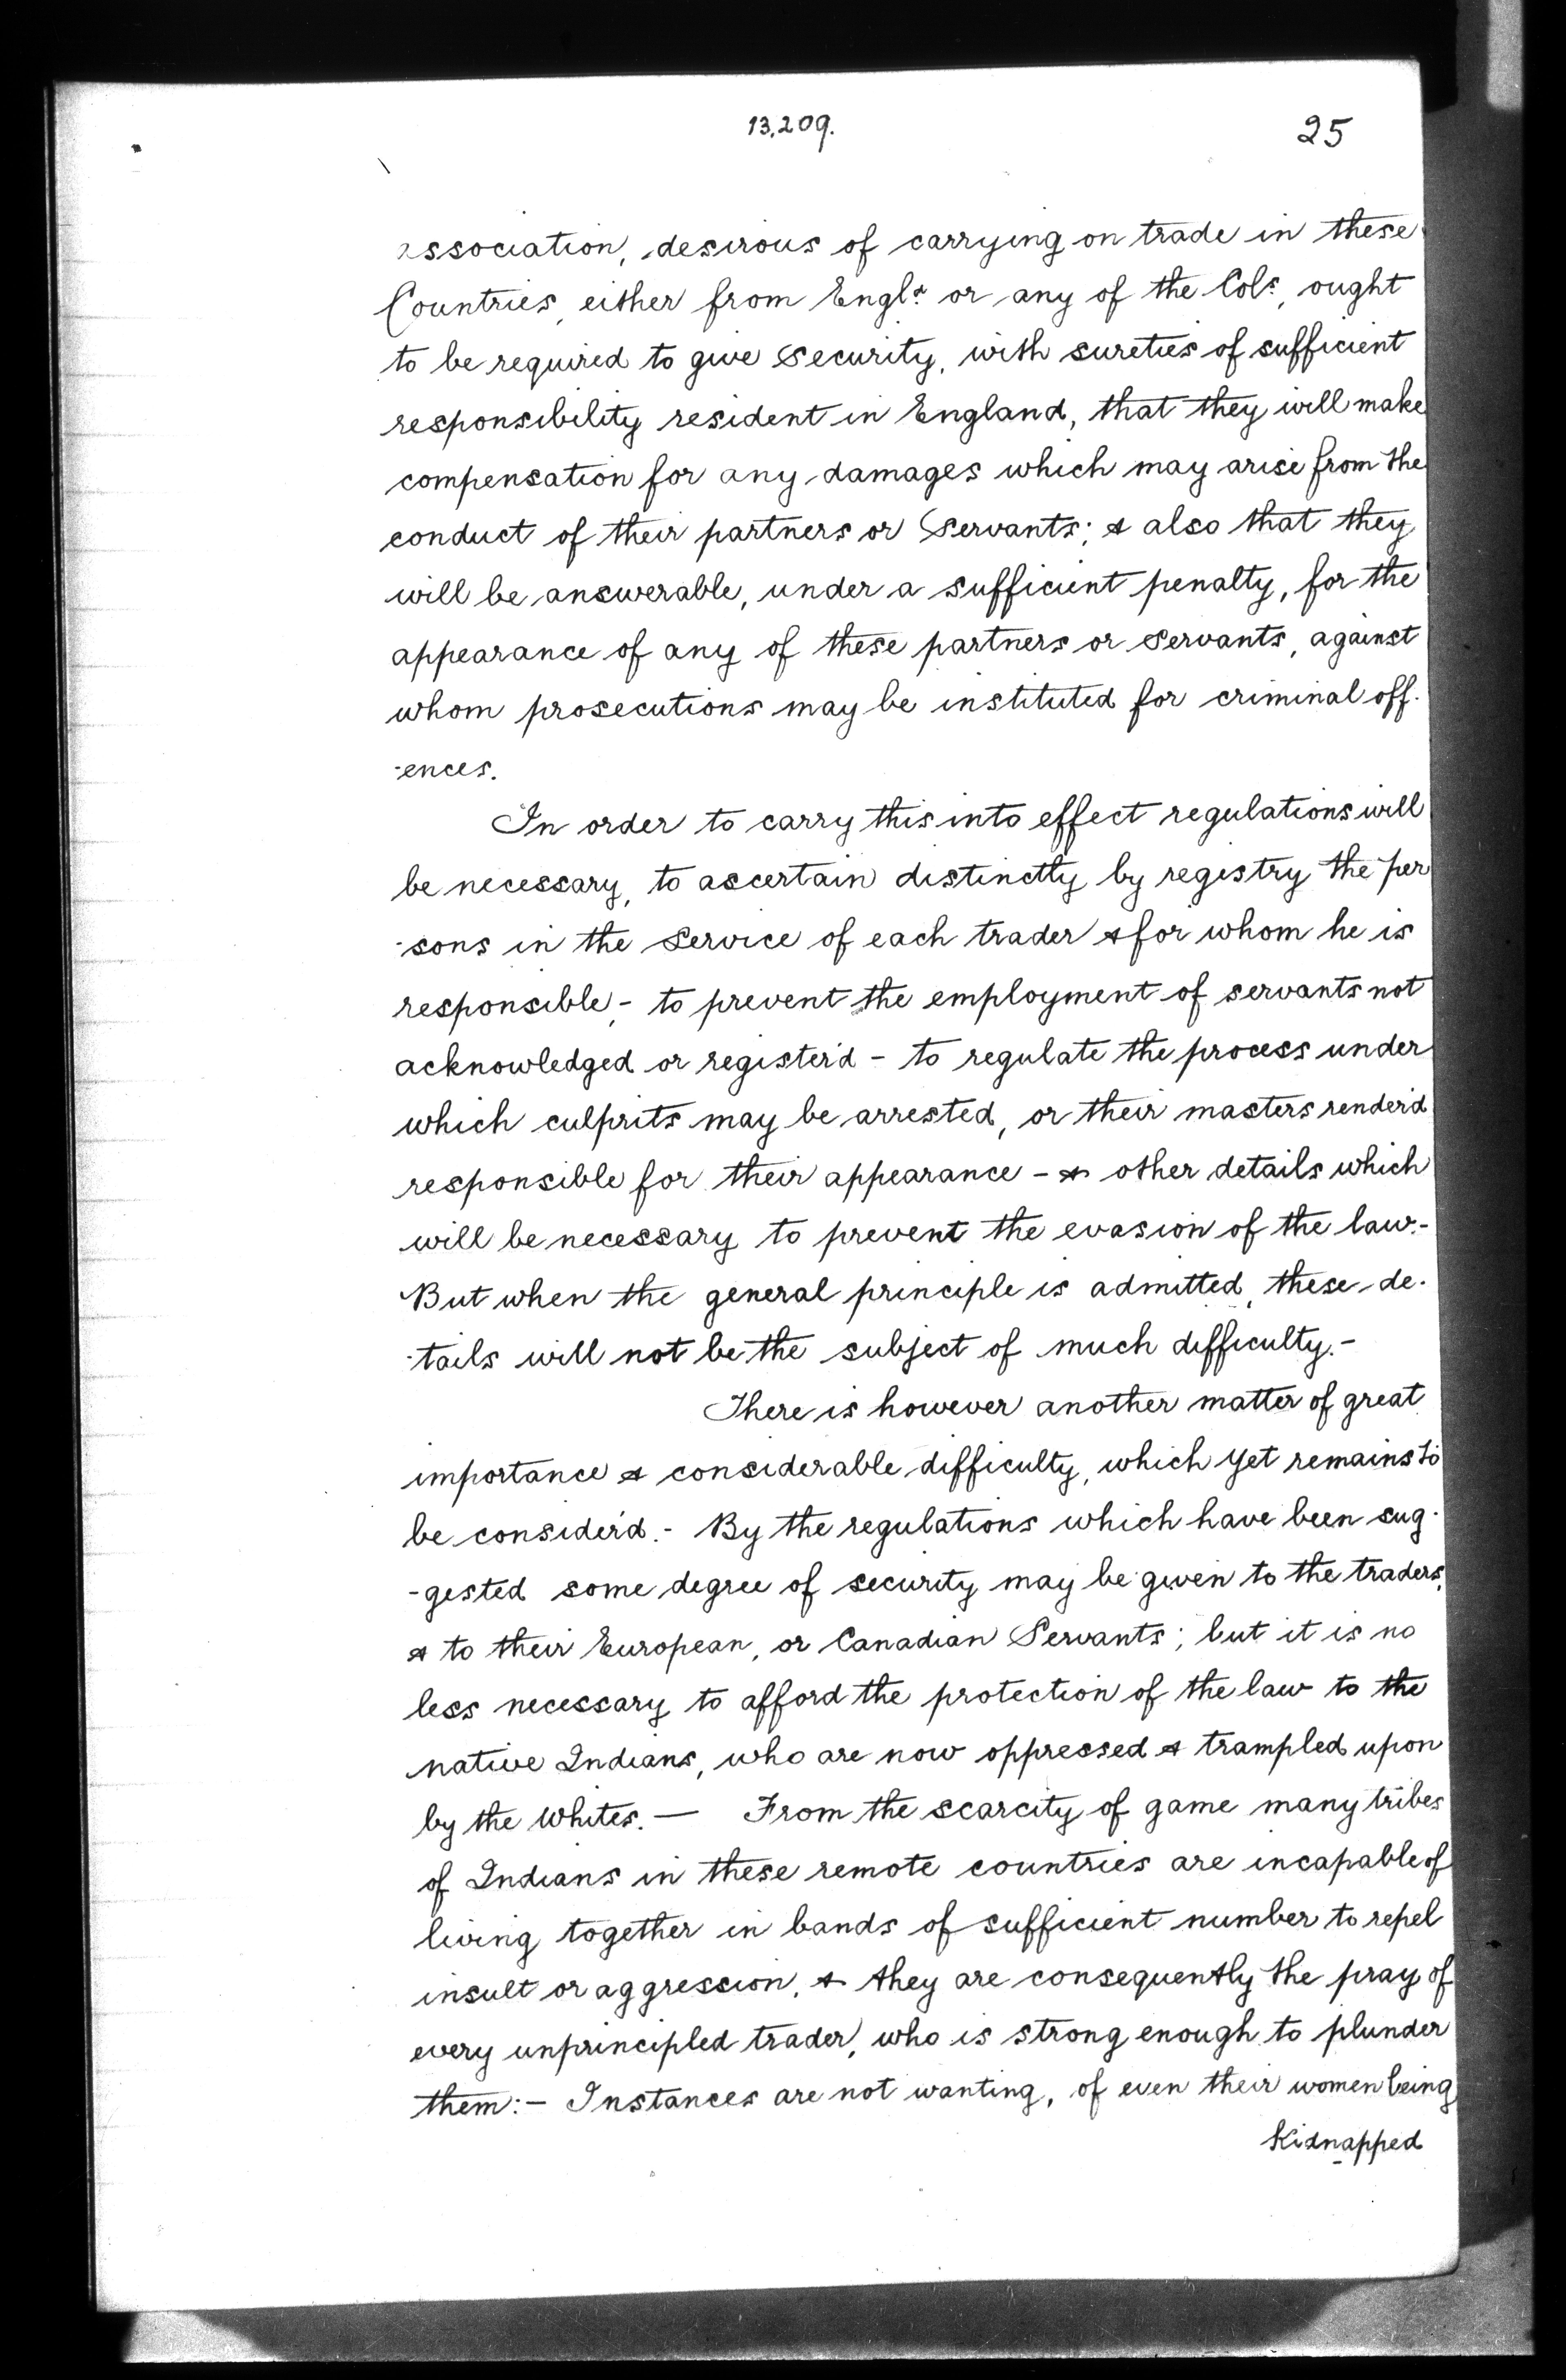 13,209.
25
association, desirous of carrying on trade in these
Countries, either from Engld. or any of the Cols, ought
to be required to give Security, with sureties of sufficient
responsibility resident in England, that they will make
compensation for any damages which may arise from the
conduct of their partners or Servants; & also that they
will be answerable, under a sufficient penalty, for the
appearance of any of these partners or Servants, against
whom prosecutions may be instituted for criminal off-
-ences.
In order to carry this into effect regulations will
be necessary, to ascertain distinctly by registry the per
-sons in the Service of each trader & for whom he is
responsible, - to prevent the employment of servants not
acknowledged or register'd - to regulate the process under
which culprits may be arrested, or their masters render'd
responsible for their appearance - & other details which
will be necessary to prevent the evasion of the law.-
But when the general principle is admitted, these de-
-tails will not be the subject of much difficulty.-
There is however another matter of great
importance & considerable difficulty, which yet remains to
be consider'd.- By the regulations which have been sug-
-gested some degree of security may be given to the traders,
& to their European, or Canadian Servants; but it is no
less necessary to afford the protection of the law to the
native Indians, who are now oppressed & trampled upon
by the Whites. — From the scarcity of game many tribes
of Indians in these remote countries are incapable of
living together in bands of sufficient number to repel
insult or aggression, & they are consequently the pray of
every unprincipled trader, who is strong enough to plunder
them:- Instances are not wanting, of even their women being
Kidnapped